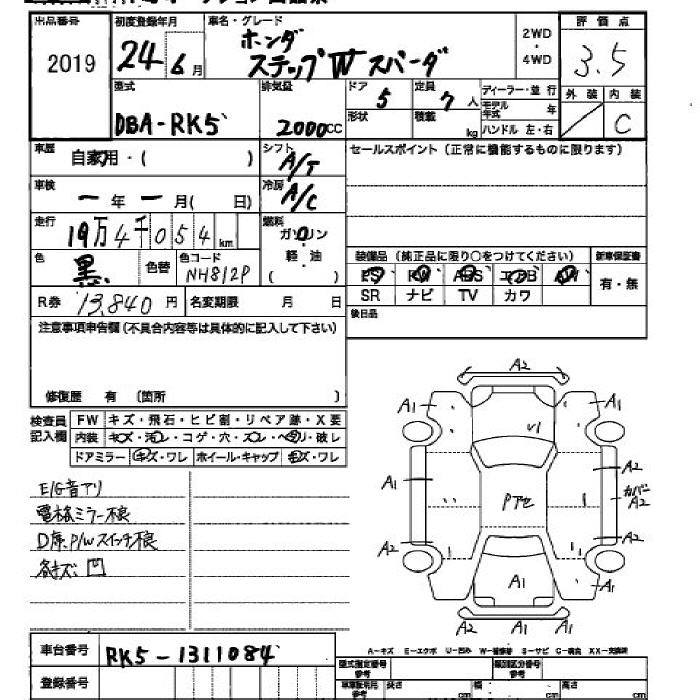 出品番号 初度登録年月 車名・グレード 評価点
2019 24年6月 ホンダ 2WD・4WD 3.5
ステップW スパーダ
型式 排気量 ドア 5 定員 7人 ディーラー・並行 外装 内装
DBA-RK5 2000cc 形状 積載 kg モデル年式 年 ハンドル 左・右 C
車歴 自家用・( ) シフト A/T セールスポイント (正常に機能するものに限ります)
車検 ー年ー月( 日) 冷房 A/C
走行 19万4千054km 燃料 ガソリン
色 黒 色替 色コード NH812P 軽・油 ( ) 装備品 (純正品に限り○をつけてください) 新車保証書
PS PW ABS エアB AW 有・無
R券 13,840円 名変期限 月 日 SR ナビ TV カワ
注意事項申告欄 (不具合内容等は具体的に記入して下さい) 後日品
修復歴 有 (箇所 )
検査員記入欄 FW キズ・飛石・ヒビ割・リペア跡・X要
内装 キズ・汚レ・コゲ・穴・スレ・ヘリ・破レ
ドアミラー キズ・ワレ ホイール・キャップ キズ・ワレ
E/G音アリ
電格ミラー不良
D席P/Wスイッチ不良
各キズ凹
A2
A1 A1
U1
A1 A2
Pアセ カバーA2
A2 A2
A1
A2 A1 A2
A-キズ E-エクボ U-凹み W-補修跡 S-サビ C-腐食 XX-交換済
車台番号 RK5-1311084
登録番号
型式指定番号 参考 類別区分番号 参考
長さ cm 幅 cm 高さ cm